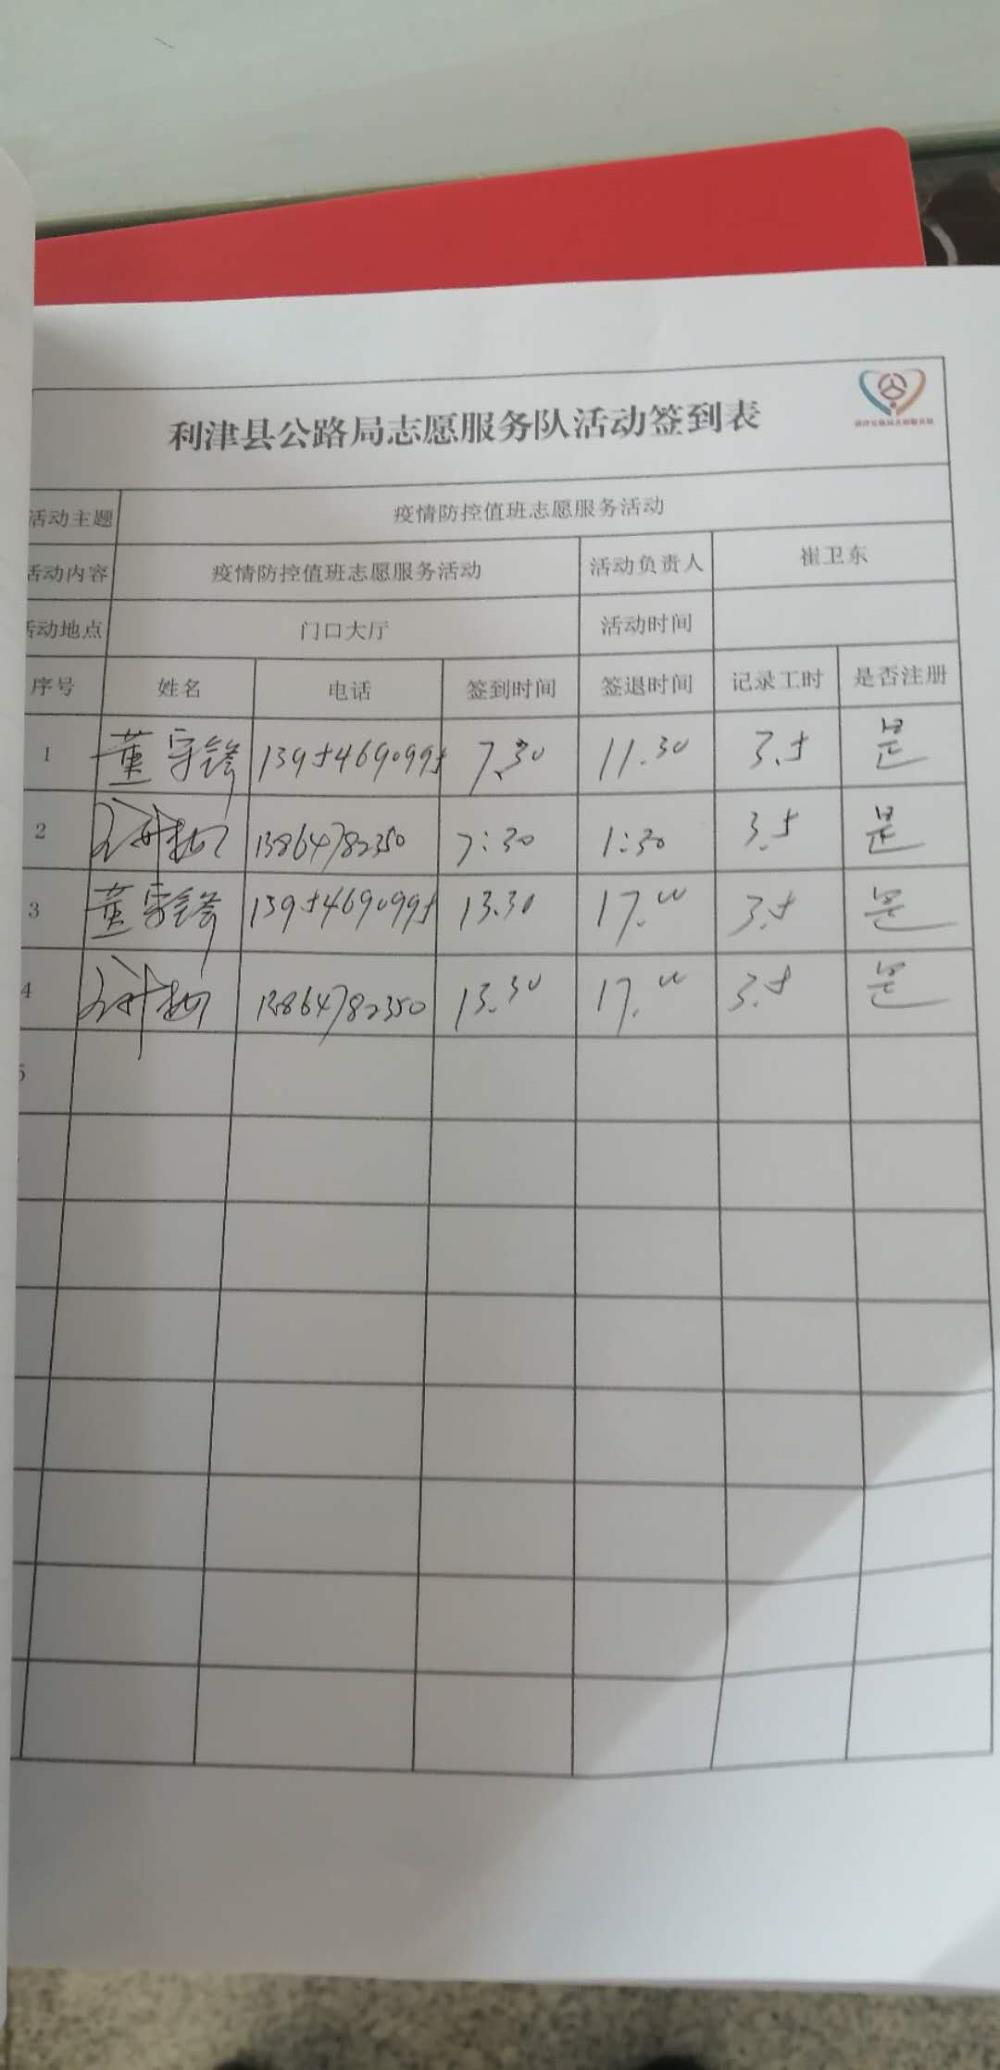 利津县公路局志愿服务队活动签到表
活动主题 疫情防控值班志愿服务活动
活动内容 疫情防控值班志愿服务活动 活动负责人 崔卫东
活动地点 门口大厅 活动时间
序号 姓名 电话 签到时间 签退时间 记录工时 是否注册
1 董 13954690995 7.30 11.30 3.5 是
2 13864782350 7:30 1:30 3.5 是
3 董 13954690995 13.30 17.00 3.5 是
4 13864782350 13.30 17.00 3.5 是
5